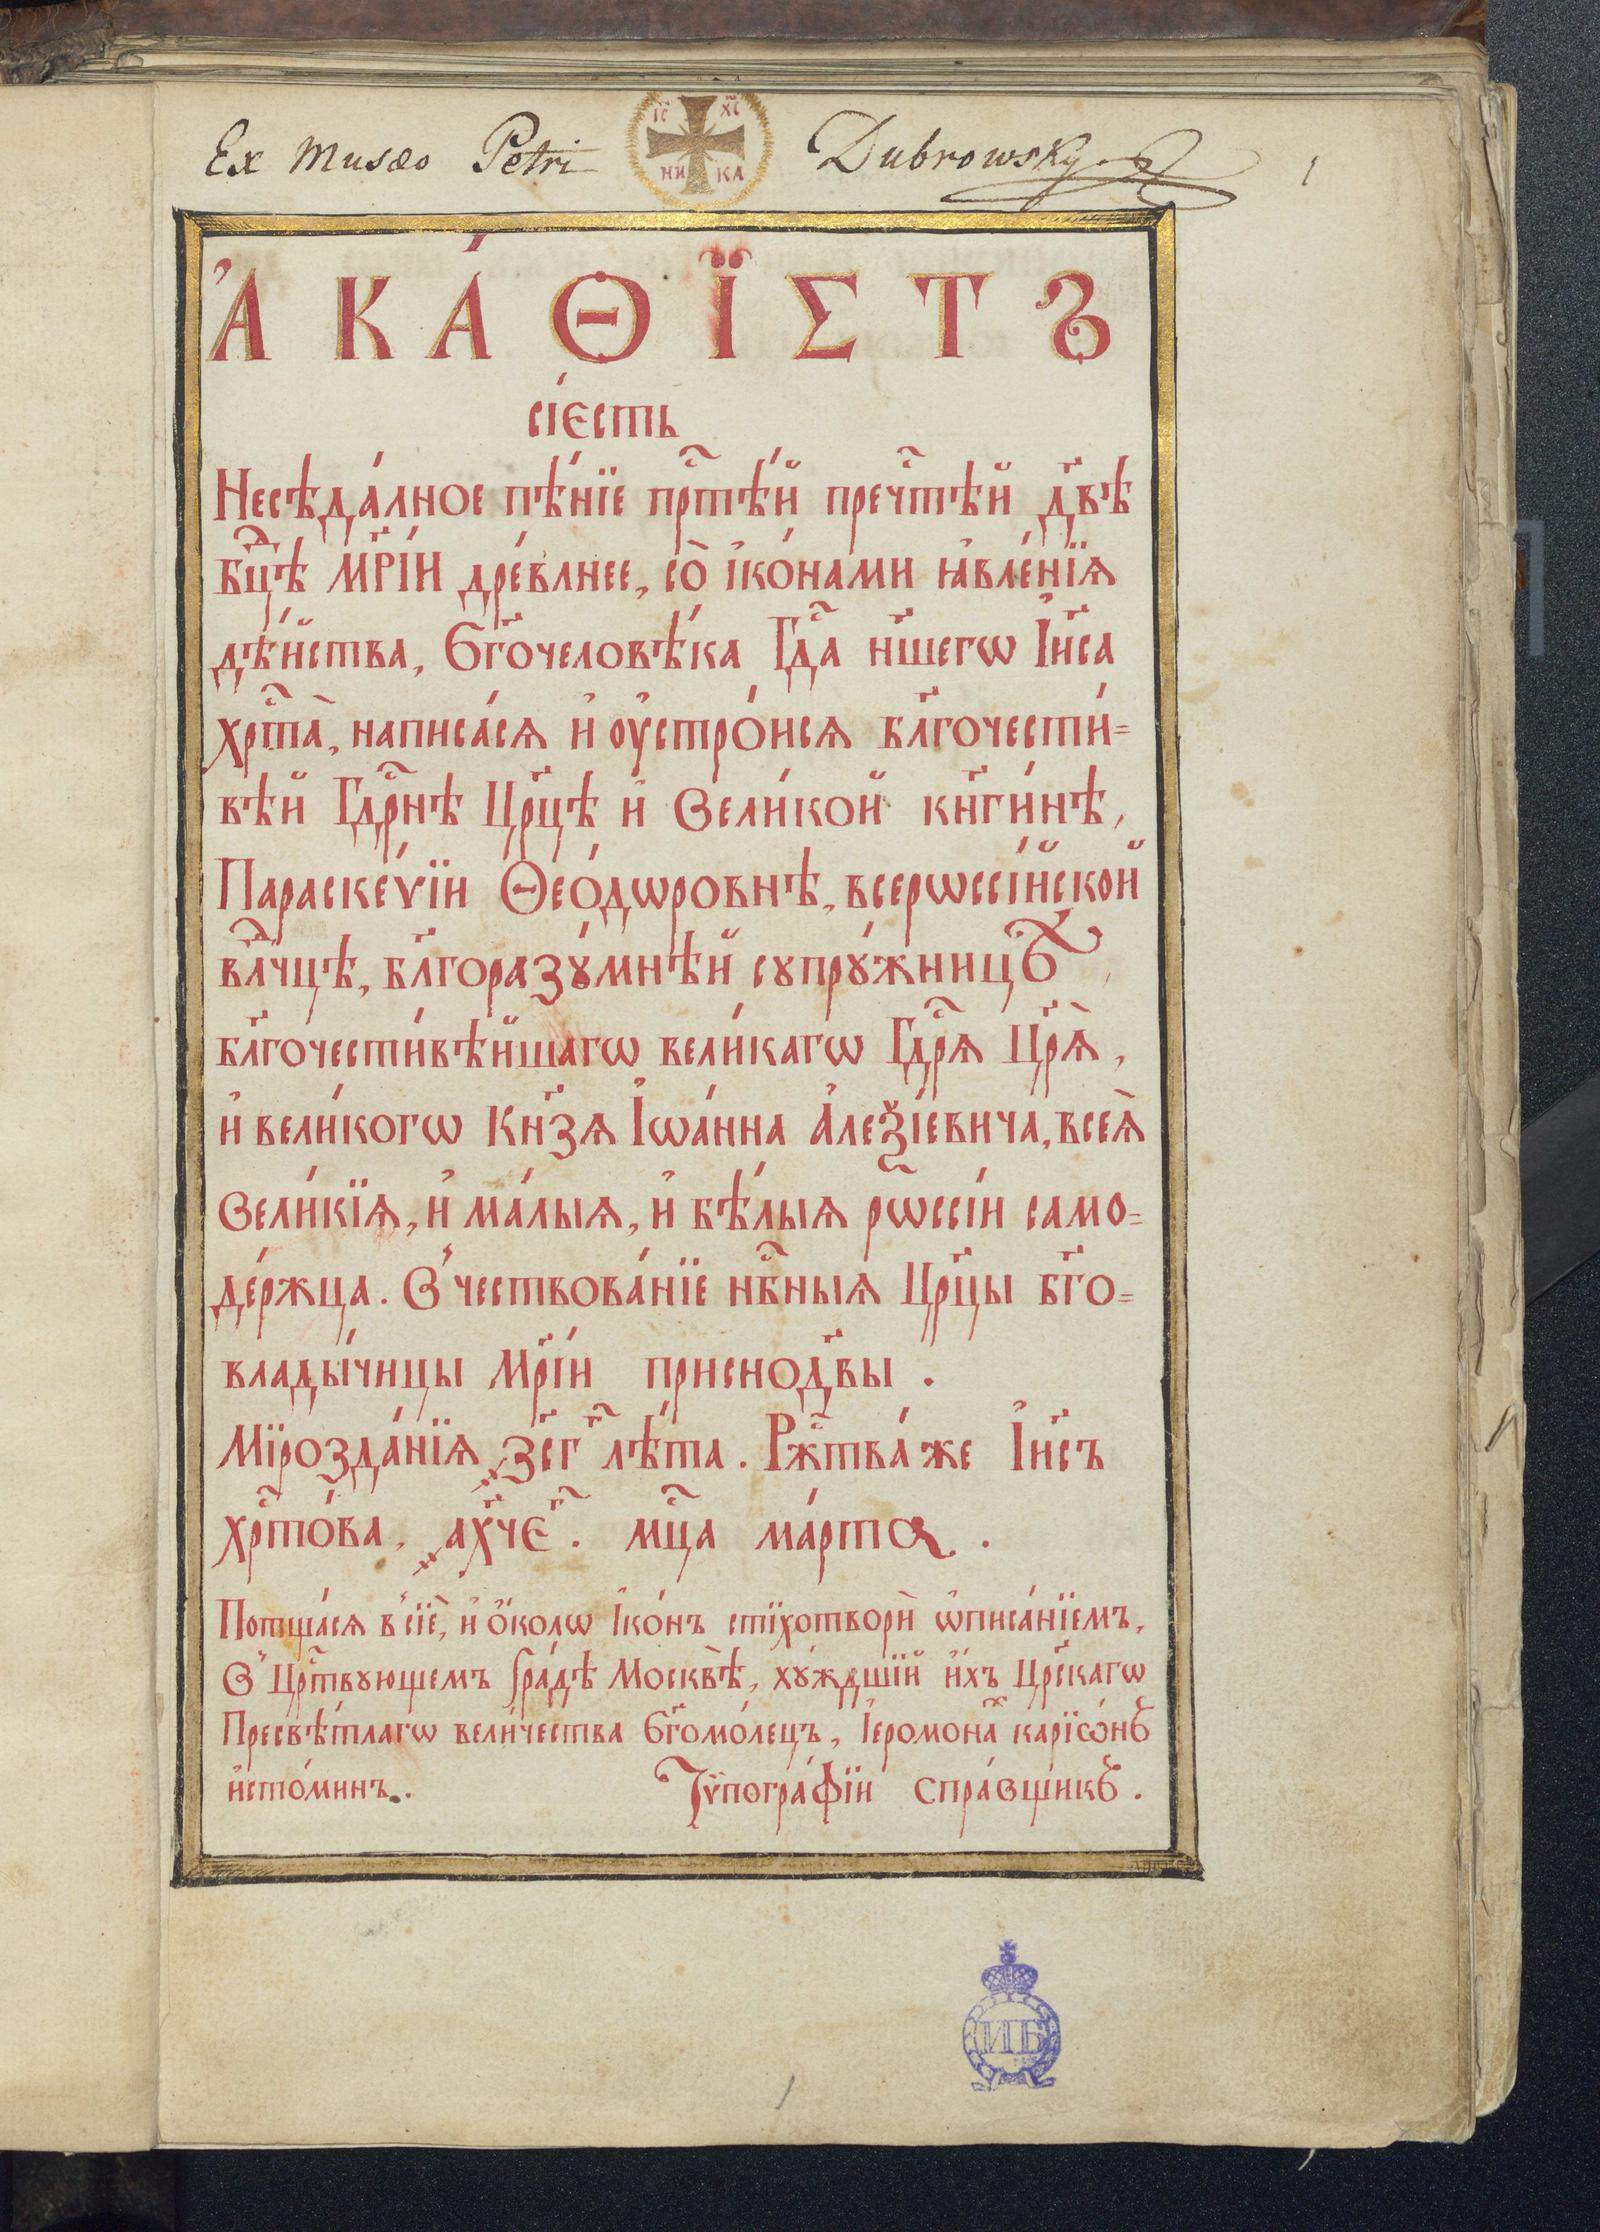 Ex Musæo Petri Dubrowsky
1
І҃С Х҃С
НИ КА
А҆КА́ѲЇСТЪ
сі́есть
Несѣда́лное пѣ́нїе прⷭ҇тѣ́й пречⷭ҇тѣй дв҃ѣ
бцⷣѣ МРІ҃И дре́влнее, со̀ і҆ко́нами ꙗ҆вле́нїѧ
дѣ́йства, бг҃очеловѣ́ка Гдⷭ҇а н҃шегѡ І҆и҃са
хрⷭ҇та̀, написа́сѧ и҆ оу҆стро́исѧ бл҃гочести́-
вѣй Гдⷭ҇рнѣ Цр҃цѣ и҆ вели́кой кн҃ги́нѣ,
Параске́ѵїи Ѳео́дѡровнѣ, всерѡссі́йской
влⷣчцѣ, бл҃горазꙋ́мнѣй супрꙋ́жницѣ
бл҃гочести́вѣйшагѡ вели́кагѡ Гдⷭ҇рѧ Цр҃ѧ̀,
и҆ вели́когѡ Кн҃зѧ І҆ѡа́нна А҆леѯі́евича, всеѧ̀
вели́кїѧ, и҆ ма́лыѧ, и҆ бѣ́лыѧ рѡссі́и само-
де́ржца. В' чествова́нїе нбⷭ҇ныѧ Цр҃цы бг҃о-
влады́чицы Мр҃і́и приснодв҃ы.
Мїрозда́нїѧ ҂зсг҃ лѣ́та. Ржⷭ҇тва́ же І҆и҃съ
хрⷭ҇то́ва, ҂ахче҃. мцⷭ҇а ма́рта.
Потща́сѧ в' сїѐ, и҆ о҆́колѡ І҆ко́нъ стїхотворѝ ѡ҆писа́нїемъ,
В' Црⷭ҇твующемъ гра́дѣ Москвѣ̀, хꙋ́ждшїй и҆́хъ Цр҃скагѡ
Пресвѣ́тлагѡ вели́чества бг҃омо́лецъ, І҆еромонаⷯ карїѡ́нъ
и҆сто́минъ. Тѷпогра́фїи спра́вщикъ.
ИБ
1